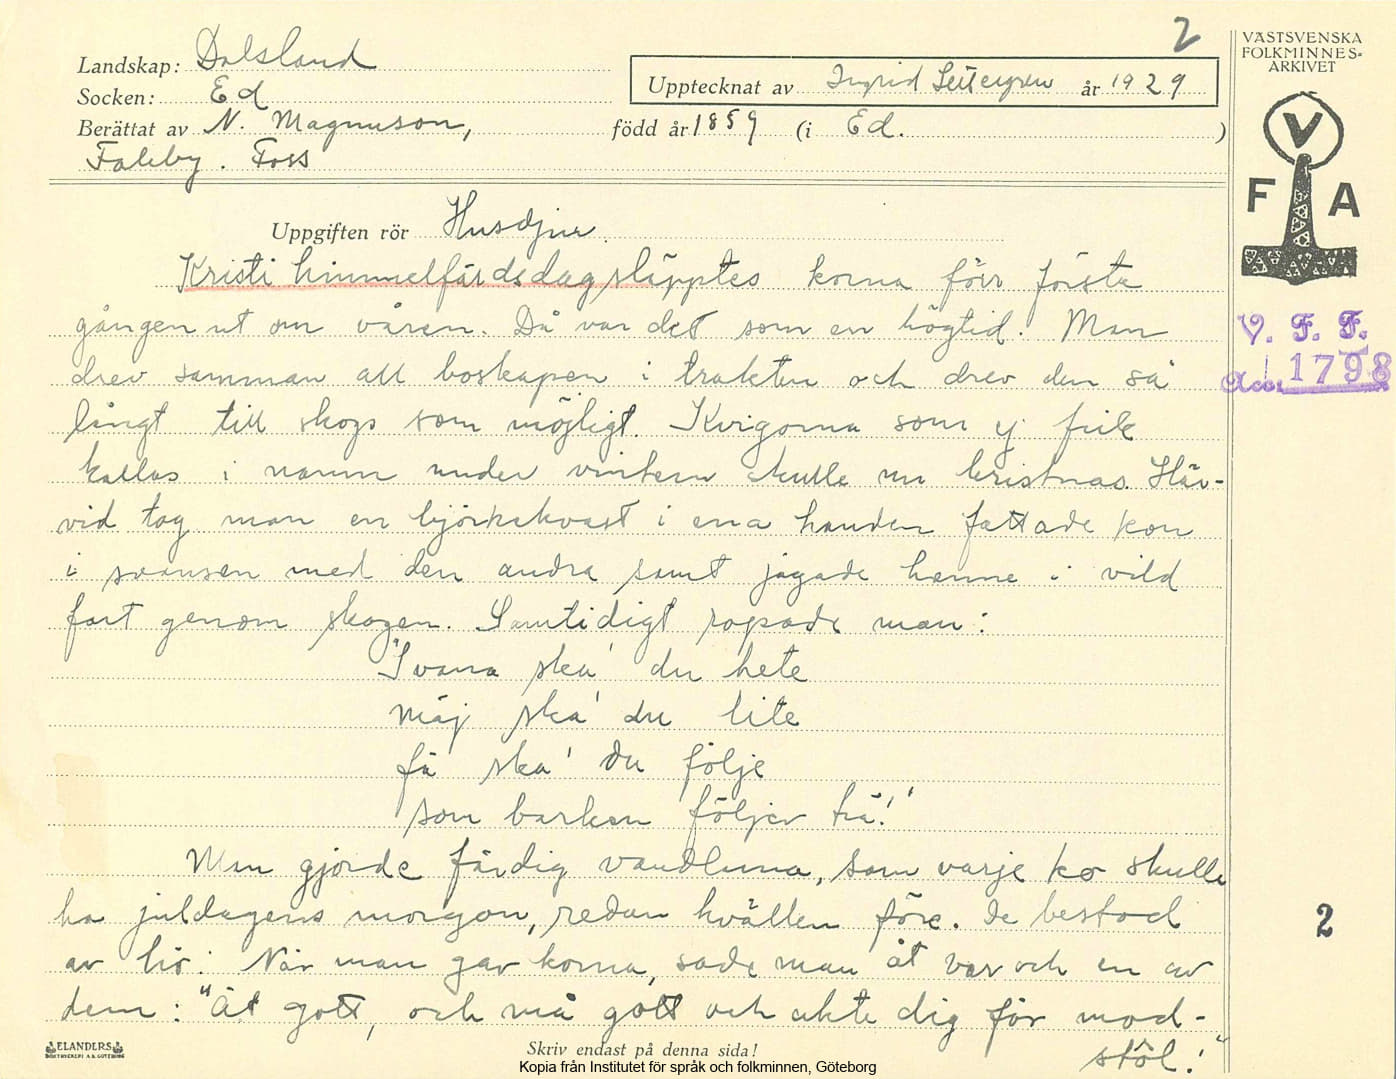 2
Landskap: Dalsland
Socken: Ed
Berättat av N. Magnuson,
Faleby. Foss
Upptecknat av Ingrid år 1929
född år 1859 (i Ed. )
VÄSTSVENSKA
FOLKMINNES-
ARKIVET
V
F A
V. F. F.
Acc. 1798
Uppgiften rör Husdjur.
Kristi himmelfärdsdag släpptes korna förr första
gången ut om våren. Då var det som en högtid. Man
drev samman all boskapen i trakten och drev den så
långt till skogs som möjligt. Kvigorna som ej fick
kallas i namn under vintern skulle nu kristnas. Här-
vid tog man en björkekvast i ena handen fattade kon
i svansen med den andra samt jagade henne i vild
fart genom skogen. Samtidigt ropade man:
"Svana ska' du hete
mäj ska' du lite
fä ska' du följe
som barken följer trä!'
Man gjorde färdig vandlarna, som varje ko skulle
ha juldagens morgon, redan kvällen före. De bestod
av hö. När man gav korna, sade man åt var och en av
dem: "Ät gott, och må gott och akte dig för mod-
stöl!"
2
ELANDERS
BOKTRYCKERI A.B. GÖTEBORG
Skriv endast på denna sida!
Kopia från Institutet för språk och folkminnen, Göteborg